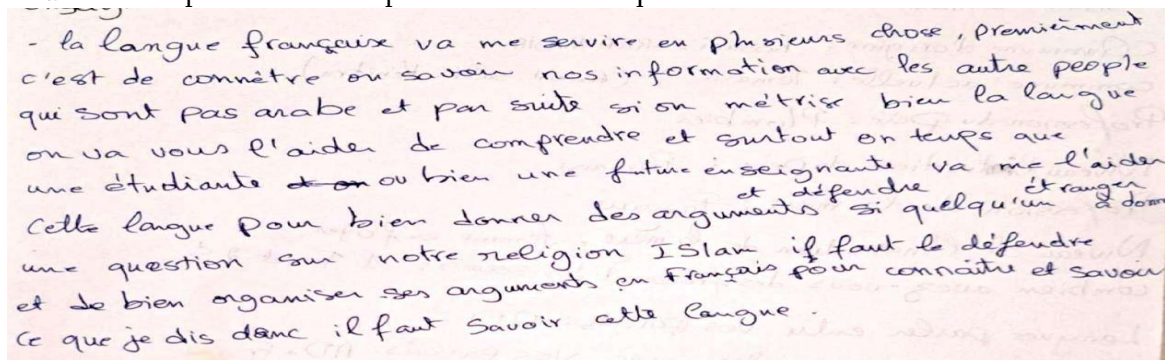 - la langue française va me servire en plusieurs chose, premièrement
c'est de connètre ou savoir nos information avec les autre people
qui sont pas arabe et par suite si on métrise bien la langue
on va vous l'aider de comprendre et surtout en temps que
une étudiante et on ou bien une future enseignante va me l'aider
cette langue pour bien donner des arguments et défendre si quelqu'un étranger a donn
une question sur notre religion ISlam il faut le défendre
et de bien organiser ses arguments en Français pour connaitre et savoir
ce que je dis donc il faut savoir cette langue.